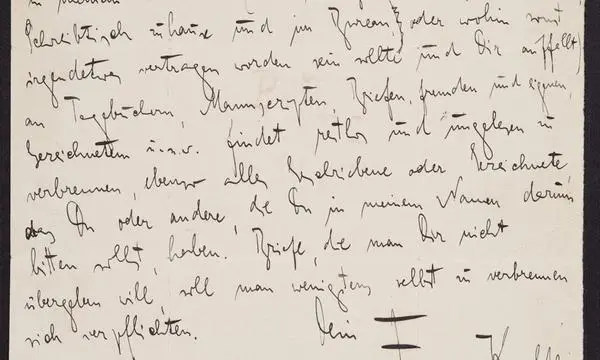 in meinem
Schreibtisch zuhause und im Bureau, oder wohin sonst
irgendetwas vertragen worden sein sollte und Dir auffällt)
an Tagebüchern, Manuscripten, Briefen, fremden und eigenen,
Gezeichnetem u.s.w. findet restlos und ungelesen zu
verbrennen, ebenso alles Geschriebene oder Gezeichnete,
das Du oder andere, die Du in meinem Namen darum
bitten sollst, haben. Briefe, die man Dir nicht
übergeben will, soll man wenigstens selbst zu verbrennen
sich verpflichten.
Dein F